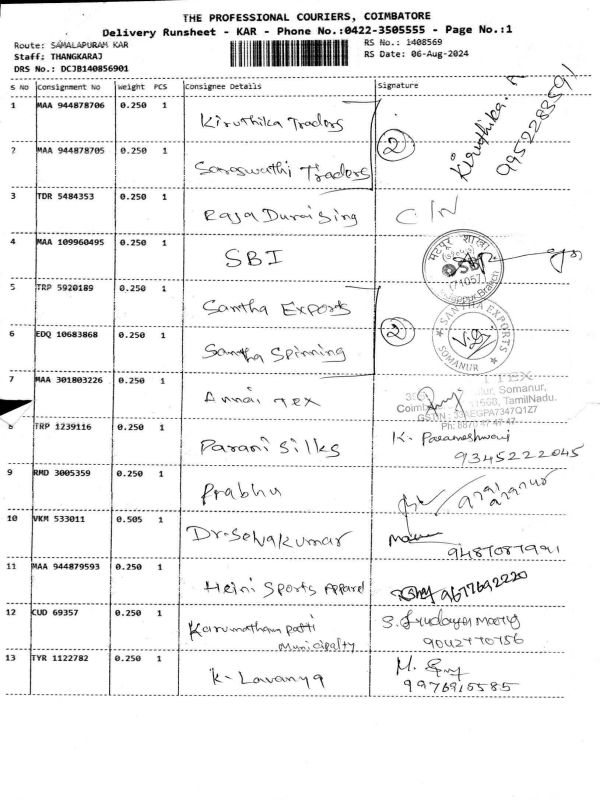 THE PROFESSIONAL COURIERS, COIMBATORE
Delivery Runsheet - KAR - Phone No.:0422-3505555 - Page No.:1
Route: SAMALAPURAM KAR RS No.: 1408569
Staff: THANGKARAJ RS Date: 06-Aug-2024
DRS No.: DCJB140856901
S No Consignment No Weight PCS Consignee Details Signature
1 MAA 944878706 0.250 1 Kiruthika Traders Kiruthika. A
9952283591
2 MAA 944878705 0.250 1 Saraswathi Traders 2
3 TDR 5484353 0.250 1 Raja Duraising C/N
4 MAA 109960495 0.250 1 SBI SBI
5 TRP 5920189 0.250 1 Santha Exports SANTHA EXPORTS
SOMANUR
6 EDQ 10683868 0.250 1 Santha Spinning 2
7 MAA 301803226 0.250 1 Annai Tex TEX
Somanur,
TamilNadu.
8 TRP 1239116 0.250 1 Parani Silks K. Parameshwari
9345222045
9 RMD 3005359 0.250 1 Prabhu
10 VKM 533011 0.505 1 Dr-Selvakumar
9487087991
11 MAA 944879593 0.250 1 Heini Sports Apparel 9677692220
12 CUD 69357 0.250 1 Karumathampatti
Municipalty 9042770756
13 TYR 1122782 0.250 1 K-Lavanya
9976915585